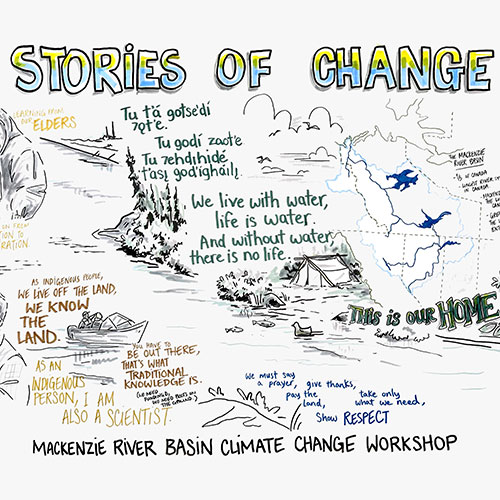 STORIES OF CHANGE
LEARNING FROM
OUR ELDERS
Tu t'á gots'edí
ʔǫt'e.
Tu godí zaot'e
Tu ʔehdıhıdé
t'ası godı́ghaılı!
We live with water,
life is water.
And without water,
there is no life.
THE MACKENZIE
RIVER BASIN
OF CANADA
THIS IS OUR HOME
AS INDIGENOUS PEOPLE,
WE LIVE OFF THE LAND,
WE KNOW
THE
LAND.
YOU HAVE TO
BE OUT THERE,
THAT'S WHAT
TRADITIONAL
KNOWLEDGE IS.
AS AN
INDIGENOUS
PERSON, I AM
ALSO A SCIENTIST.
We must say
a prayer, give thanks,
pay the land, take only
what we need,
Show RESPECT
MACKENZIE RIVER BASIN CLIMATE CHANGE WORKSHOP